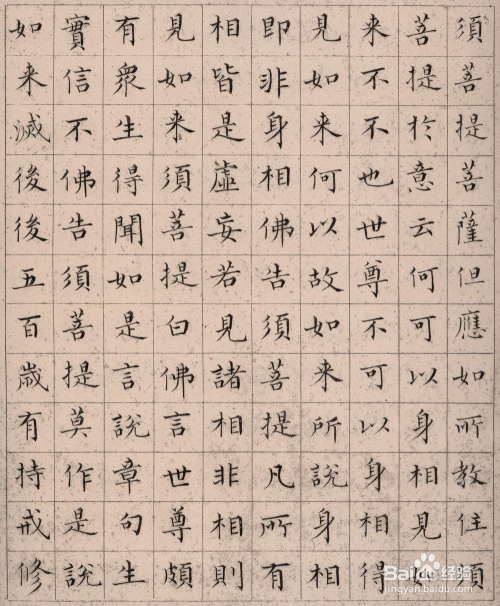 須菩提菩薩但應如所教住須
菩提於意云何可以身相見如
来不不也世尊不可以身相得
見如来何以故如来所說身相
即非身相佛告須菩提凡所有
相皆是虛妄若見諸相非相則
見如来須菩提白佛言世尊頗
有衆生得聞如是言說章句生
實信不佛告須菩提莫作是說
如来滅後後五百歲有持戒修
Baidu经验
jingyan.baidu.com